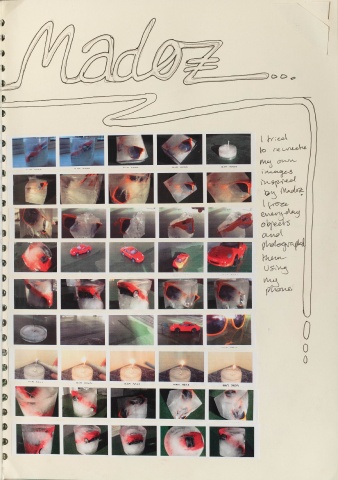 Madoz...
I tried
to recreate
my own
images
inspired
by Madoz
I froze
everyday
objects
and
photographed
them
using
my
phone.